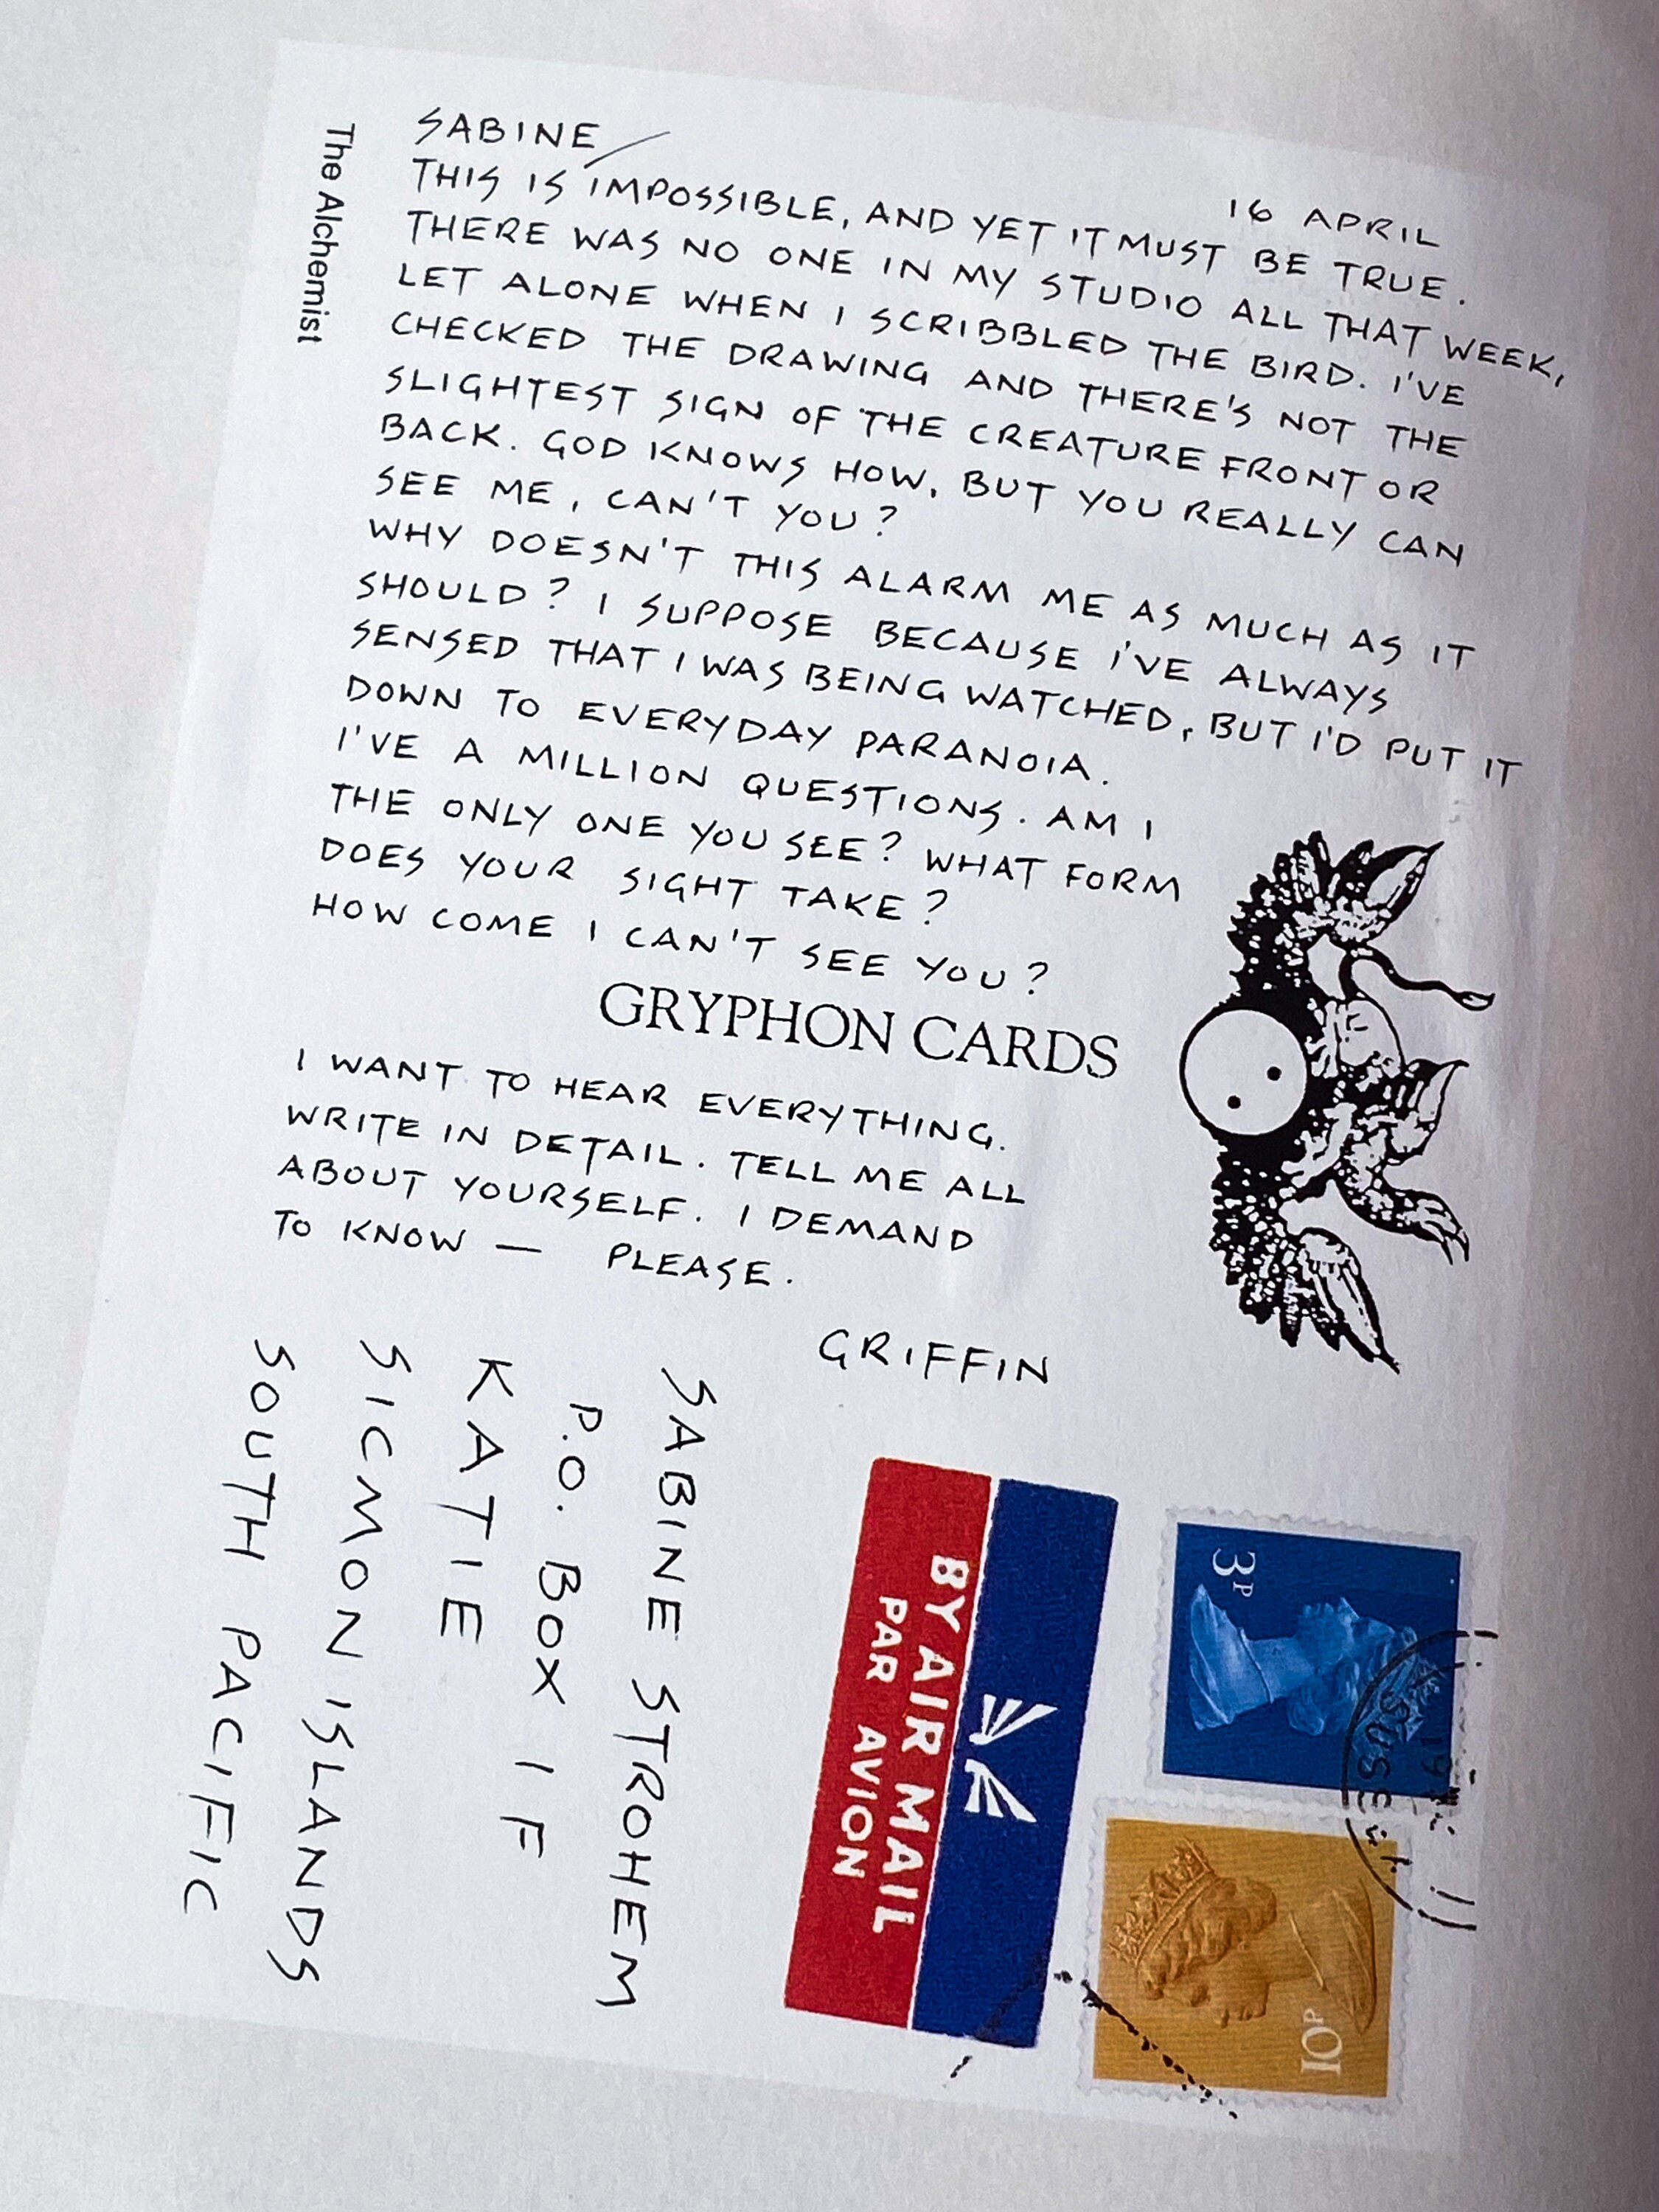 The Alchemist
SABINE
16 APRIL
THIS IS IMPOSSIBLE, AND YET IT MUST BE TRUE.
THERE WAS NO ONE IN MY STUDIO ALL THAT WEEK,
LET ALONE WHEN I SCRIBBLED THE BIRD. I'VE
CHECKED THE DRAWING AND THERE'S NOT THE
SLIGHTEST SIGN OF THE CREATURE FRONT OR
BACK. GOD KNOWS HOW, BUT YOU REALLY CAN
SEE ME, CAN'T YOU?
WHY DOESN'T THIS ALARM ME AS MUCH AS IT
SHOULD? I SUPPOSE BECAUSE I'VE ALWAYS
SENSED THAT I WAS BEING WATCHED, BUT I'D PUT IT
DOWN TO EVERYDAY PARANOIA.
I'VE A MILLION QUESTIONS. AM I
THE ONLY ONE YOU SEE? WHAT FORM
DOES YOUR SIGHT TAKE?
HOW COME I CAN'T SEE YOU?
GRYPHON CARDS
I WANT TO HEAR EVERYTHING.
WRITE IN DETAIL. TELL ME ALL
ABOUT YOURSELF. I DEMAND
TO KNOW — PLEASE.
GRIFFIN
SABINE STROHEM
P.O. BOX 1 F
KATIE
SICMON ISLANDS
SOUTH PACIFIC
BY AIR MAIL
PAR AVION
3P
10P